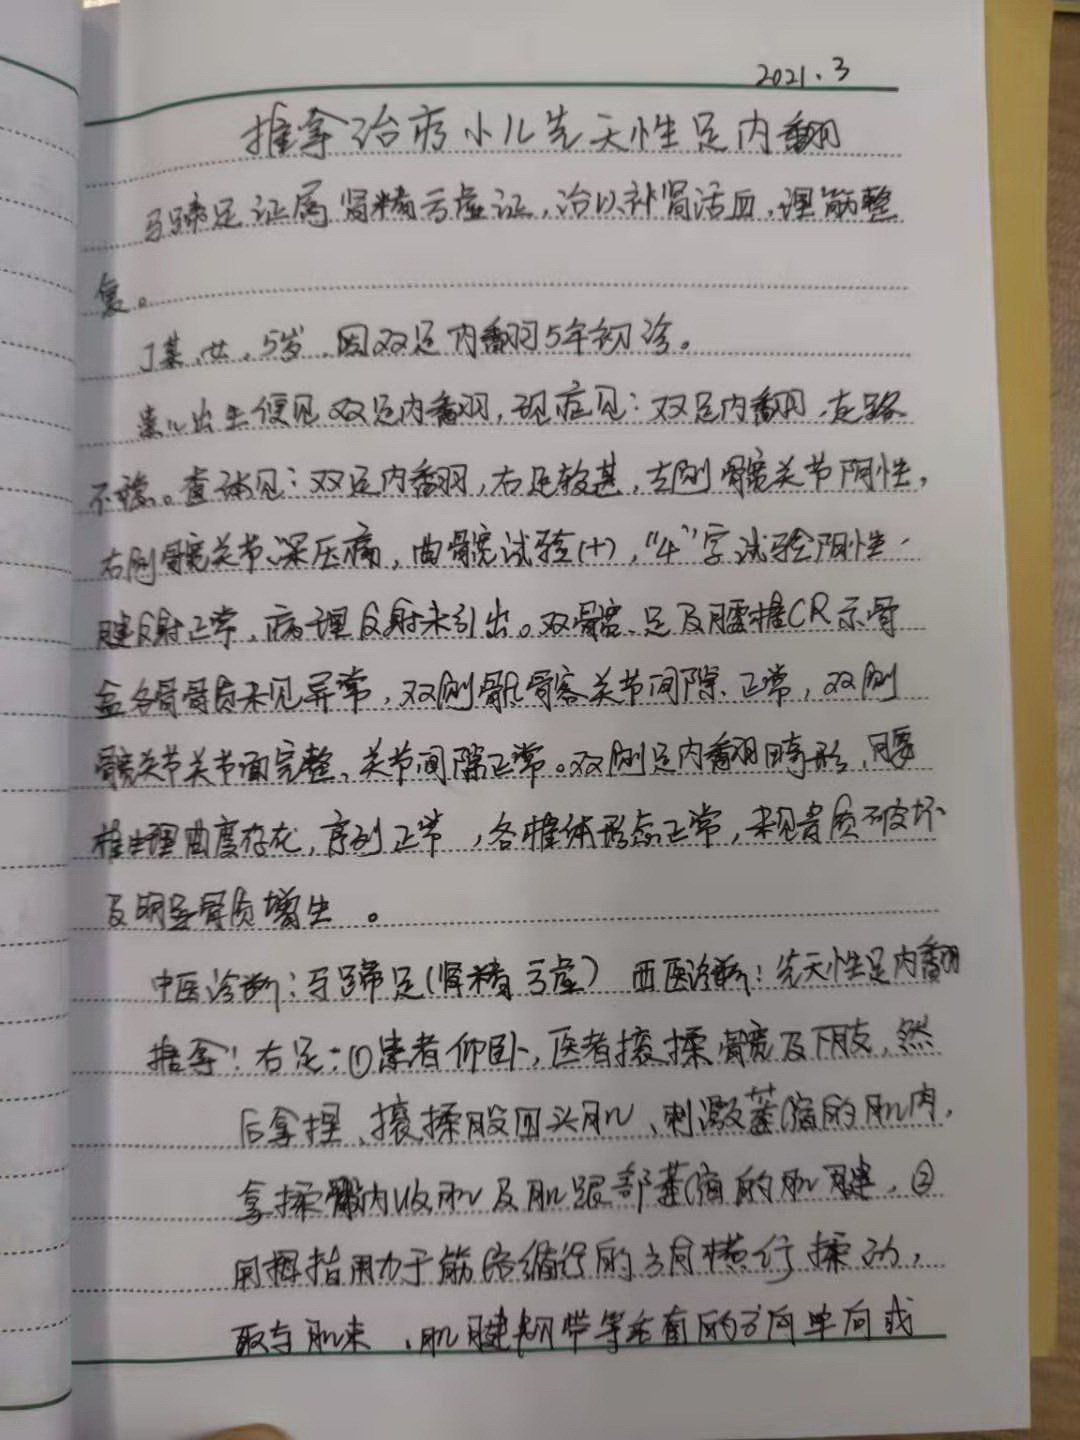 2021.3
推拿治疗小儿先天性足内翻
马蹄足证属肾精亏虚证,治以补肾活血,理筋整
复。
丁某,女,5岁,因双足内翻5年初诊。
患儿出生便见双足内翻,现症见:双足内翻,走路
不稳。查体见:双足内翻,右足较甚,左侧髋关节阴性,
右侧髋关节深压痛,曲髋试验(+),“4”字试验阴性,
腱反射正常,病理反射未引出。双髋、足及腰椎CR示骨
盆各骨骨质未见异常,双侧骶髂关节间隙正常,双侧
髋关节关节面完整,关节间隙正常。双侧足内翻畸形,腰
椎生理曲度存在,序列正常,各椎体形态正常,未见骨质破坏
及明显骨质增生。
中医诊断:马蹄足(肾精亏虚) 西医诊断:先天性足内翻
推拿:右足:①患者仰卧,医者揉髋及下肢,然
后拿捏、揉股四头肌、刺激萎缩的肌肉,
拿揉内收肌及跟部萎缩的肌腱,②
用拇指用力于筋络循行的方向横行揉动,
取与肌束、肌腱韧带等垂直的方向单向或